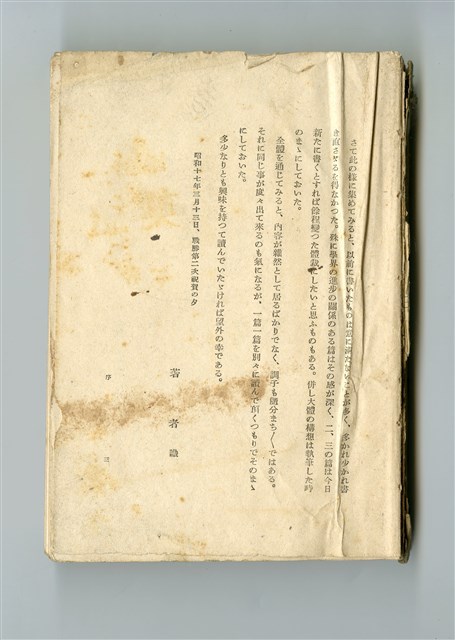 さて此の樣に集めてみると、以前に書いたものは意に滿たないことが多く、多かれ少かれ書
き直さざるを得なかつた。殊に學界の進步の關係のある篇はその感が深く、二、三の篇は今日
新たに書くとすれば餘程變つた體裁にしたいと思ふものもある。併し大體の構想は執筆した時
のまゝにしておいた。
全體を通じてみると、內容が雜然として居るばかりでなく、調子も隨分まち〱ではある。
それに同じ事が度々出て來るのも氣になるが、一篇一篇を別々に讀んで頂くつもりでそのまゝ
にしておいた。
多少なりとも興味を持つて讀んでいたゞければ望外の幸である。
昭和十七年三月十三日、戰勝第二次祝賀の夕
著者識
序